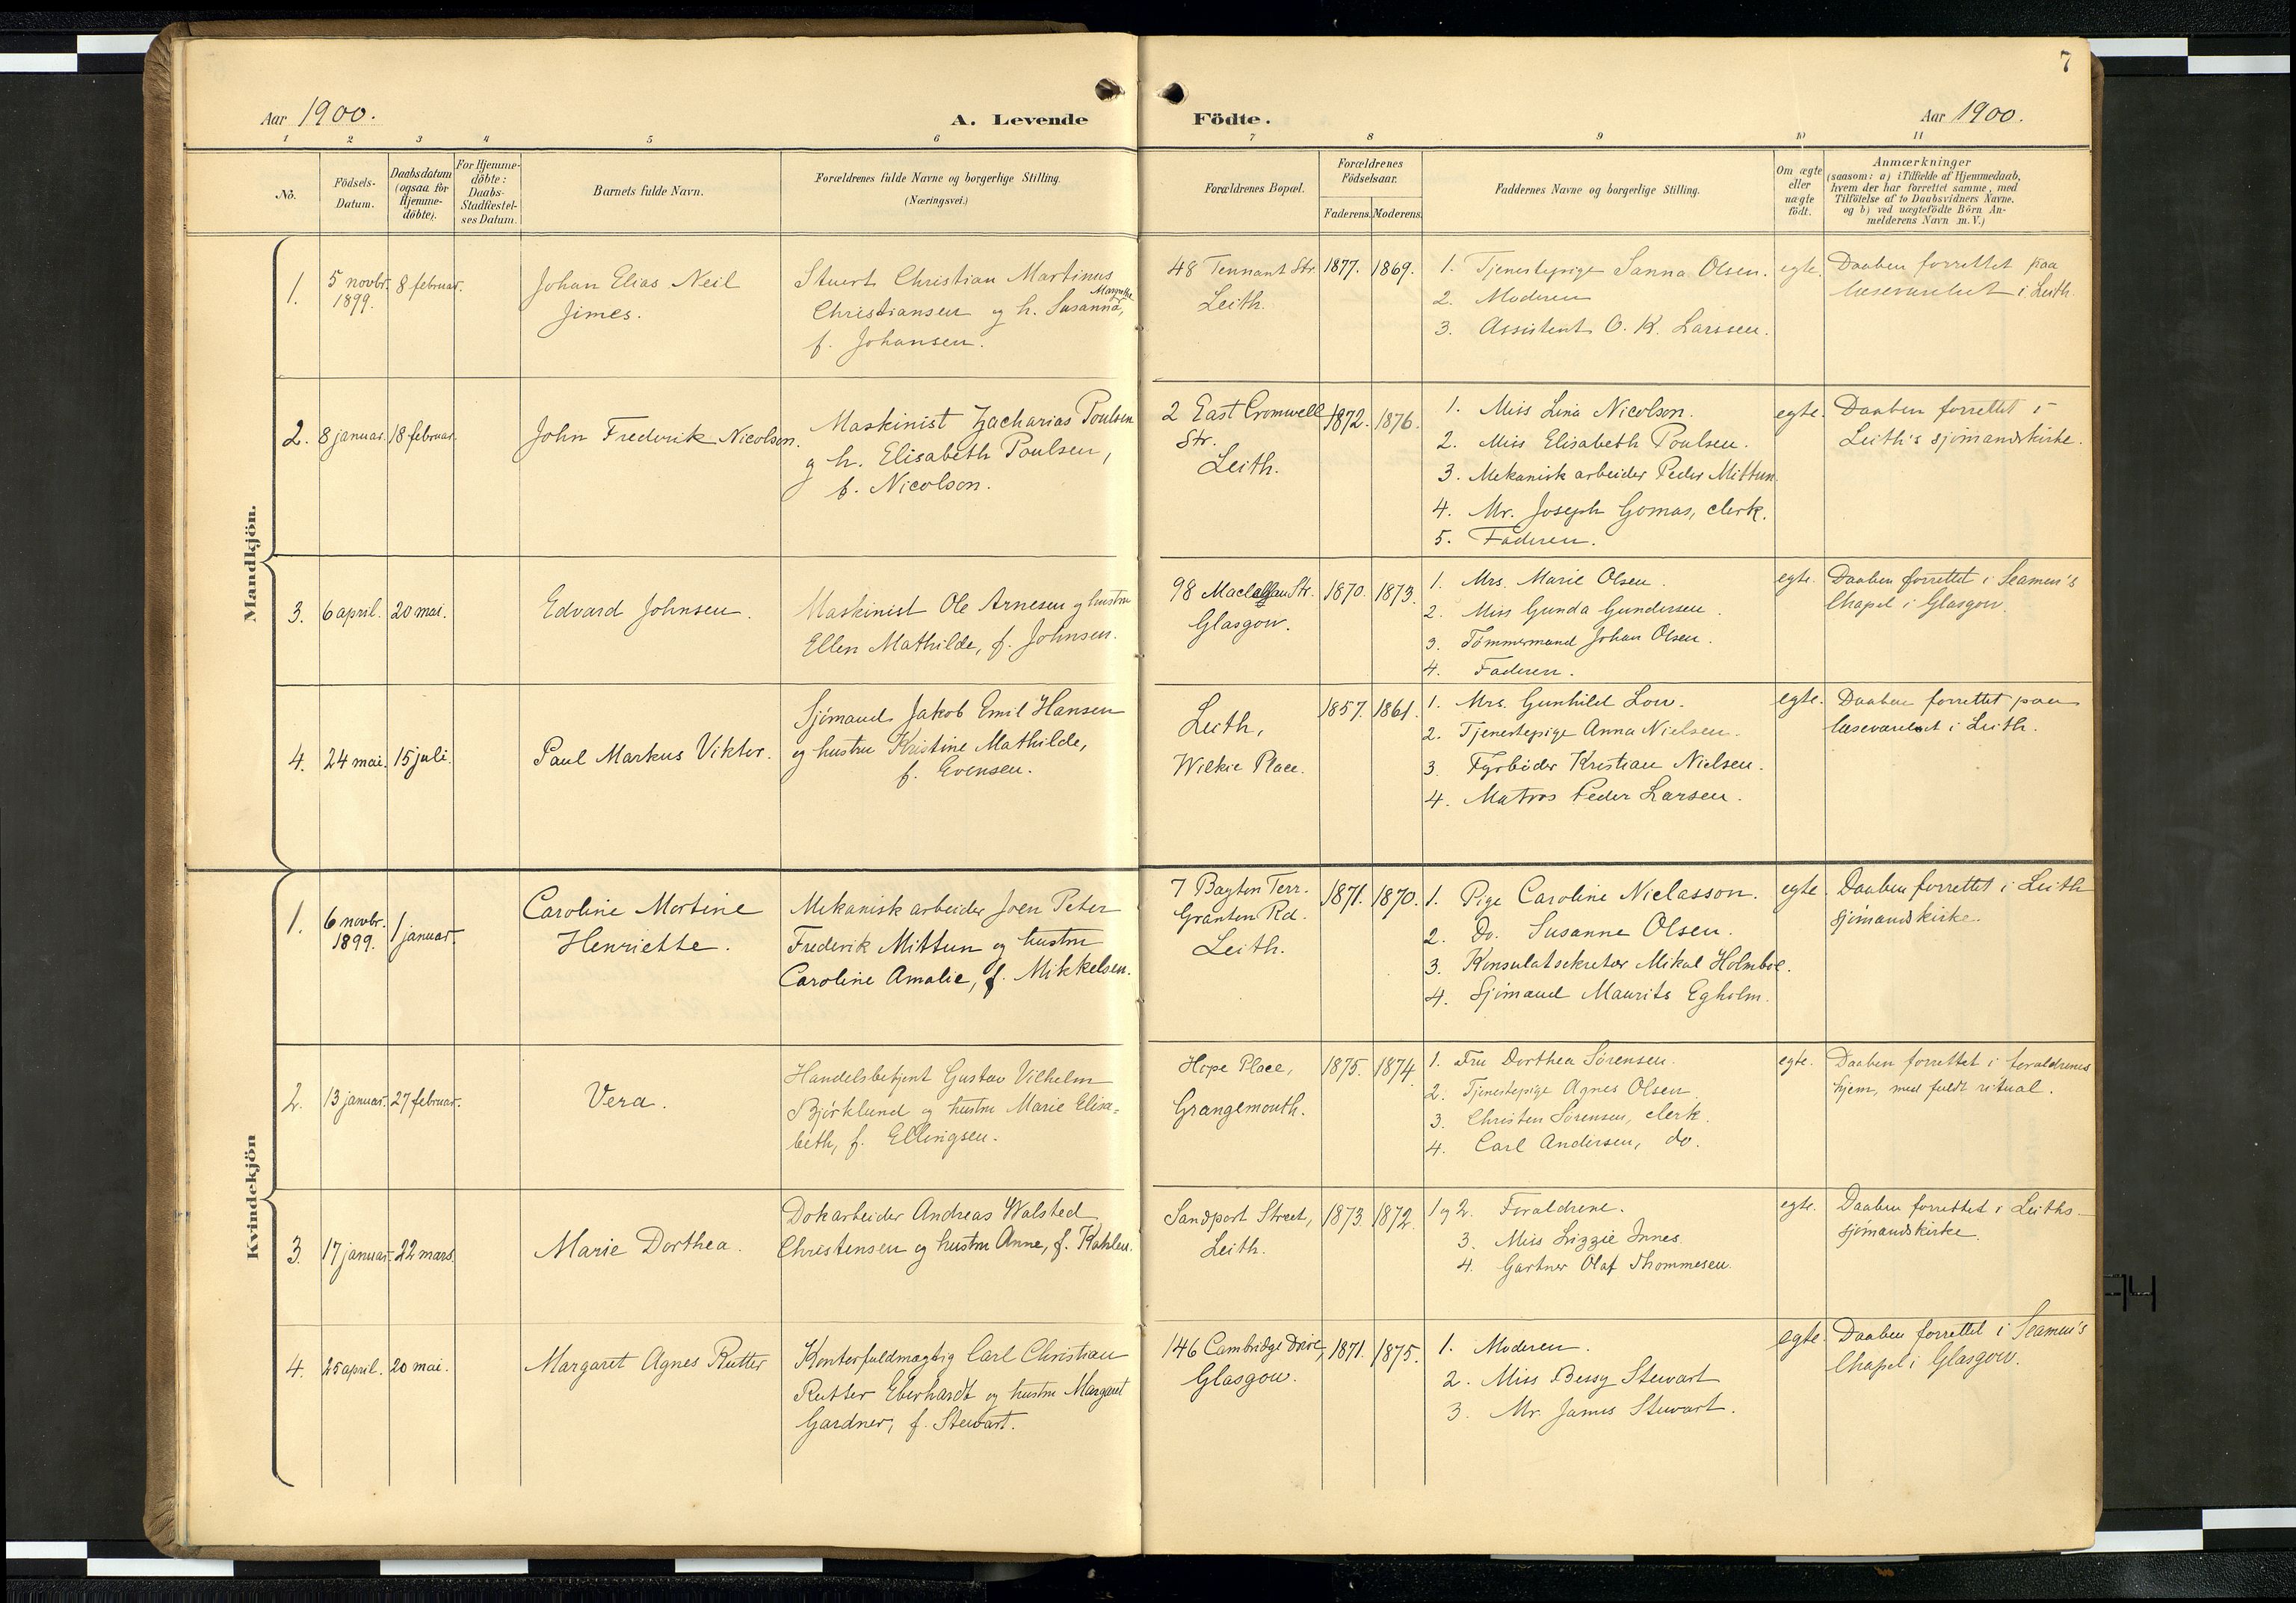 7
Aar 1900.
A. Levende Födte.
Aar 1900.
1 2 3 4 5 6 7 8 9 10 11
No.
Födsels-
Datum.
Daabsdatum
(ogsaa for
Hjemme-
döbte).
For Hjemme-
döbte:
Daabs-
Stadfæstel-
ses Datum.
Barnets fulde Navn.
Forældrenes fulde Navne og borgerlige Stilling.
(Næringsvei.)
Forældrenes Bopæl.
Forældrenes
Födselsaar.
Faderens. Moderens.
Faddernes Navne og borgerlige Stilling.
Om ægte
eller
uægte
födt.
Anmærkninger
(saasom: a) i Tilfælde af Hjemmedaab,
hvem der har forrettet samme, med
Tilföielse af to Daabsvidners Navne.
og b) ved uægtefödte Börn An-
melderens Navn m. V.)
Mandkjön.
1.
5 novbr.
1899.
8 februar.
Johan Elias Neil
Jimes.
Stuert Christian Martinus
Margrethe
Christiansen og h. Susanna,
f. Johansen.
48 Tennant Str.
Leith.
1877.
1869.
1. Tjenestepige Sanna Olsen.
2. Moderen
3. Assistent O. K. Larssen.
egte.
Daaben forrettet paa
læseværelset i Leith.
2.
8 januar.
18 februar.
John Frederik Nicolson.
Maskinist Zacharias Poulsen
og h. Elisabeth Poulsen,
f. Nicolson.
2 East Cromwell
Str.
Leith.
1872.
1876.
1. Miss Lina Nicolson.
2. Miss Elisabeth Poulsen.
3. Mekanisk arbeider Peder Mittun
4. Mr. Joseph Gomas, clerk.
5. Faderen.
egte.
Daaben forrettet i
Leith's sjömandskirke.
3.
6 april.
20 mai.
Edvard Johnsen.
Maskinist Ole Arnesen og hustru
Ellen Mathilde, f. Johnsen.
98 Str.
Glasgow.
1870.
1873.
1. Mrs. Marie Olsen.
2. Miss Gunda Gundersen.
3. Tömmermand Johan Olsen.
4. Faderen.
egte.
Daaben forrettet i Seamen's
Chapel i Glasgow.
4.
24 mai.
15 juli.
Paul Markus Viktor.
Sjömand Jakob Emil Hansen
og hustru Kristine Mathilde,
f. Evensen.
Leith,
Wilkie Place.
1857.
1861.
1. Mrs. Gunhild Low.
2. Tjenestepige Anna Nielsen.
3. Fyrböder Kristian Nielsen.
4. Matros Peder Larsen.
egte.
Daaben forrettet paa
læseværelset i Leith.
Kvindekjön
1.
6 novbr.
1899.
1 januar.
Caroline Mortine
Henriette.
Mekanisk arbeider Joen Peter
Frederik Mittun og hustru
Caroline Amalie, f. Mikkelsen.
7 Bagton Terr.
Granton Rd.
Leith.
1871.
1870.
1. Pige Caroline Niclasson.
2. Do. Susanne Olsen.
3. Konsulatsekretær Mikal Holmboe.
4. Sjömand Maurits Egholm.
egte.
Daaben forrettet i Leith
sjömandskirke.
2.
13 januar.
27 februar.
Vera.
Handelsbetjent Gustav Vilhelm
Björklund og hustru Marie Elisa-
beth, f. Ellingsen.
Hope Place,
Grangemouth.
1875.
1874
1. Fru Dorthea Sörensen.
2. Tjenestepige Agnes Olsen
3. Christen Sörensen, clerk.
4. Carl Andersen, do.
egte.
Daaben forrettet i foraldrenes
hjem, med fuldt ritual.
3.
17 januar.
22 mars.
Marie Dorthea.
Dokarbeider Andreas Walsted
Christensen og hustru Anne, f. Kahlen.
Sandport Street,
Leith.
1873.
1872.
1 og 2. Foraldrene.
3. Miss Lizzie Innes.
4. Gartner Olaf Thommesen.
egte.
Daaben forrettet i Leiths
sjömandskirke.
4.
25 april.
20 mai.
Margaret Agnes Rutter
Kontorfuldmægtig Carl Christian
Rutter Eberhardt og hustru Margaret
Gardner, f. Stewart.
146 Cambridge Drive,
Glasgow.
1871.
1875.
1. Moderen.
2. Miss Bessy Stewart
3. Mr. James Stewart.
egte.
Daaben forrettet i Seamen's
Chapel i Glasgow.